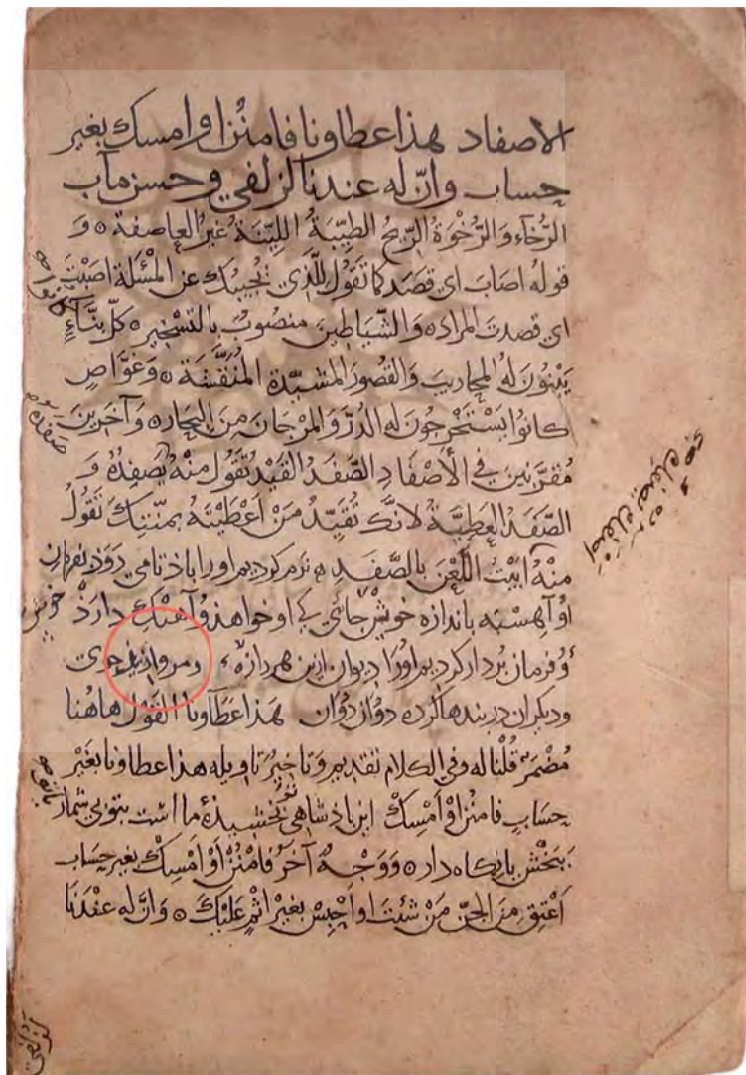 الاصفاد هذا عطاونا فامنن او امسك بغير
حساب وانّ له عندنا لزلفي وحسن مآب
الرُّخآء وَالرُّخْوَةُ الرّيحُ الطيِّبَةُ اللّيّنَةُ غَيرُ العاصفة ۞ وَ
قولهُ اصَابَ اي قصَدَ كما تقُولُ للّذي يُجيبُك عن المسْئلة اصَبْتَ
اي قصدتَ المراده وَالشّياطينَ منصُوبٌ بالتسْخيره كلّ بنّآءٍ
يَبْنُونَ لهُ المحاريبَ وَالقصُورَ المشيّدةَ المُنَقَّشَةَ ۞ وَغوَّاصٍ
كانُوا يَسْتَخْرِجُونَ له الدُّرَّ وَالمَرْجَانَ مِنَ البحاره وَآخَرِينَ
مُقرَّنينَ في الأَصْفَادِ الصَّفَدُ القَيْدُ تقُولُ منْهُ يَصْفِدُهُ وَ
الصَّفَدُ العَطِيَّةُ لانّكَ تُقَيّدُ مَنْ اَعْطَيْتَهُ بمنّتِكَ تَقُولُ
منْهُ ابَيْتَ اللَّعْنَ بالصَّفَدِ ۞ نرم کردیم او را باذ تامی روذ بفرمان
او آهسته باندازه خویش جائی کی او خواهذ و آهنک دارذ خوش
وفرمان بُردار کردیم اورا دیوان ازین هر دازه و مرواریذ جوی
ودیکران در بندها کرده دوان دوان هذا عَطَآونا القول هاهُنا
مُضْمَرٌ قُلْنا له وفي الكلام تقديم وَتاخيرٌ تاويله هذا عطاونا بغَيْر
حسَابٍ فامننْ اَوْ اَمْسِكْ این اذ شاهی بخشیدهٔ ما است بتو بی شمار
ببَخش یا نکاه دار ۞ وَوَجْهٌ آخرُ فامْنُنْ اَوْ اَمْسِكْ بغير حسَاب
اَعْتِقْ مِنَ الجِنّ مَنْ شئتَ اواحْبِسْ بغَيْر اثْمٍ عَلَيْكَ ۞ وَانّ له عنْدَنَا